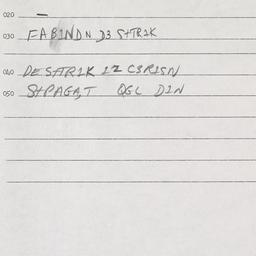 020 —
030 FABINDN D3 StTR1K
040 DESATR1K 12 C3R1SN
050 StPAGA,T QGL D1N